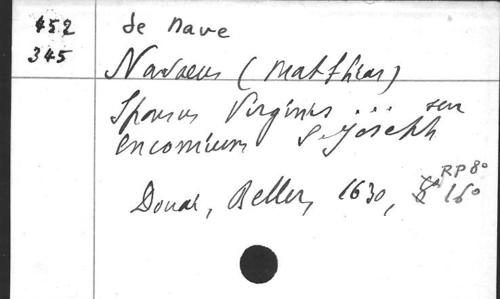 452 de Nave
345 Navaeus (Matthias)
Sponsus Virginis ... seu
encomium S. Joseph
RP 8°
Douai, Beller, 1630, 8° 16°